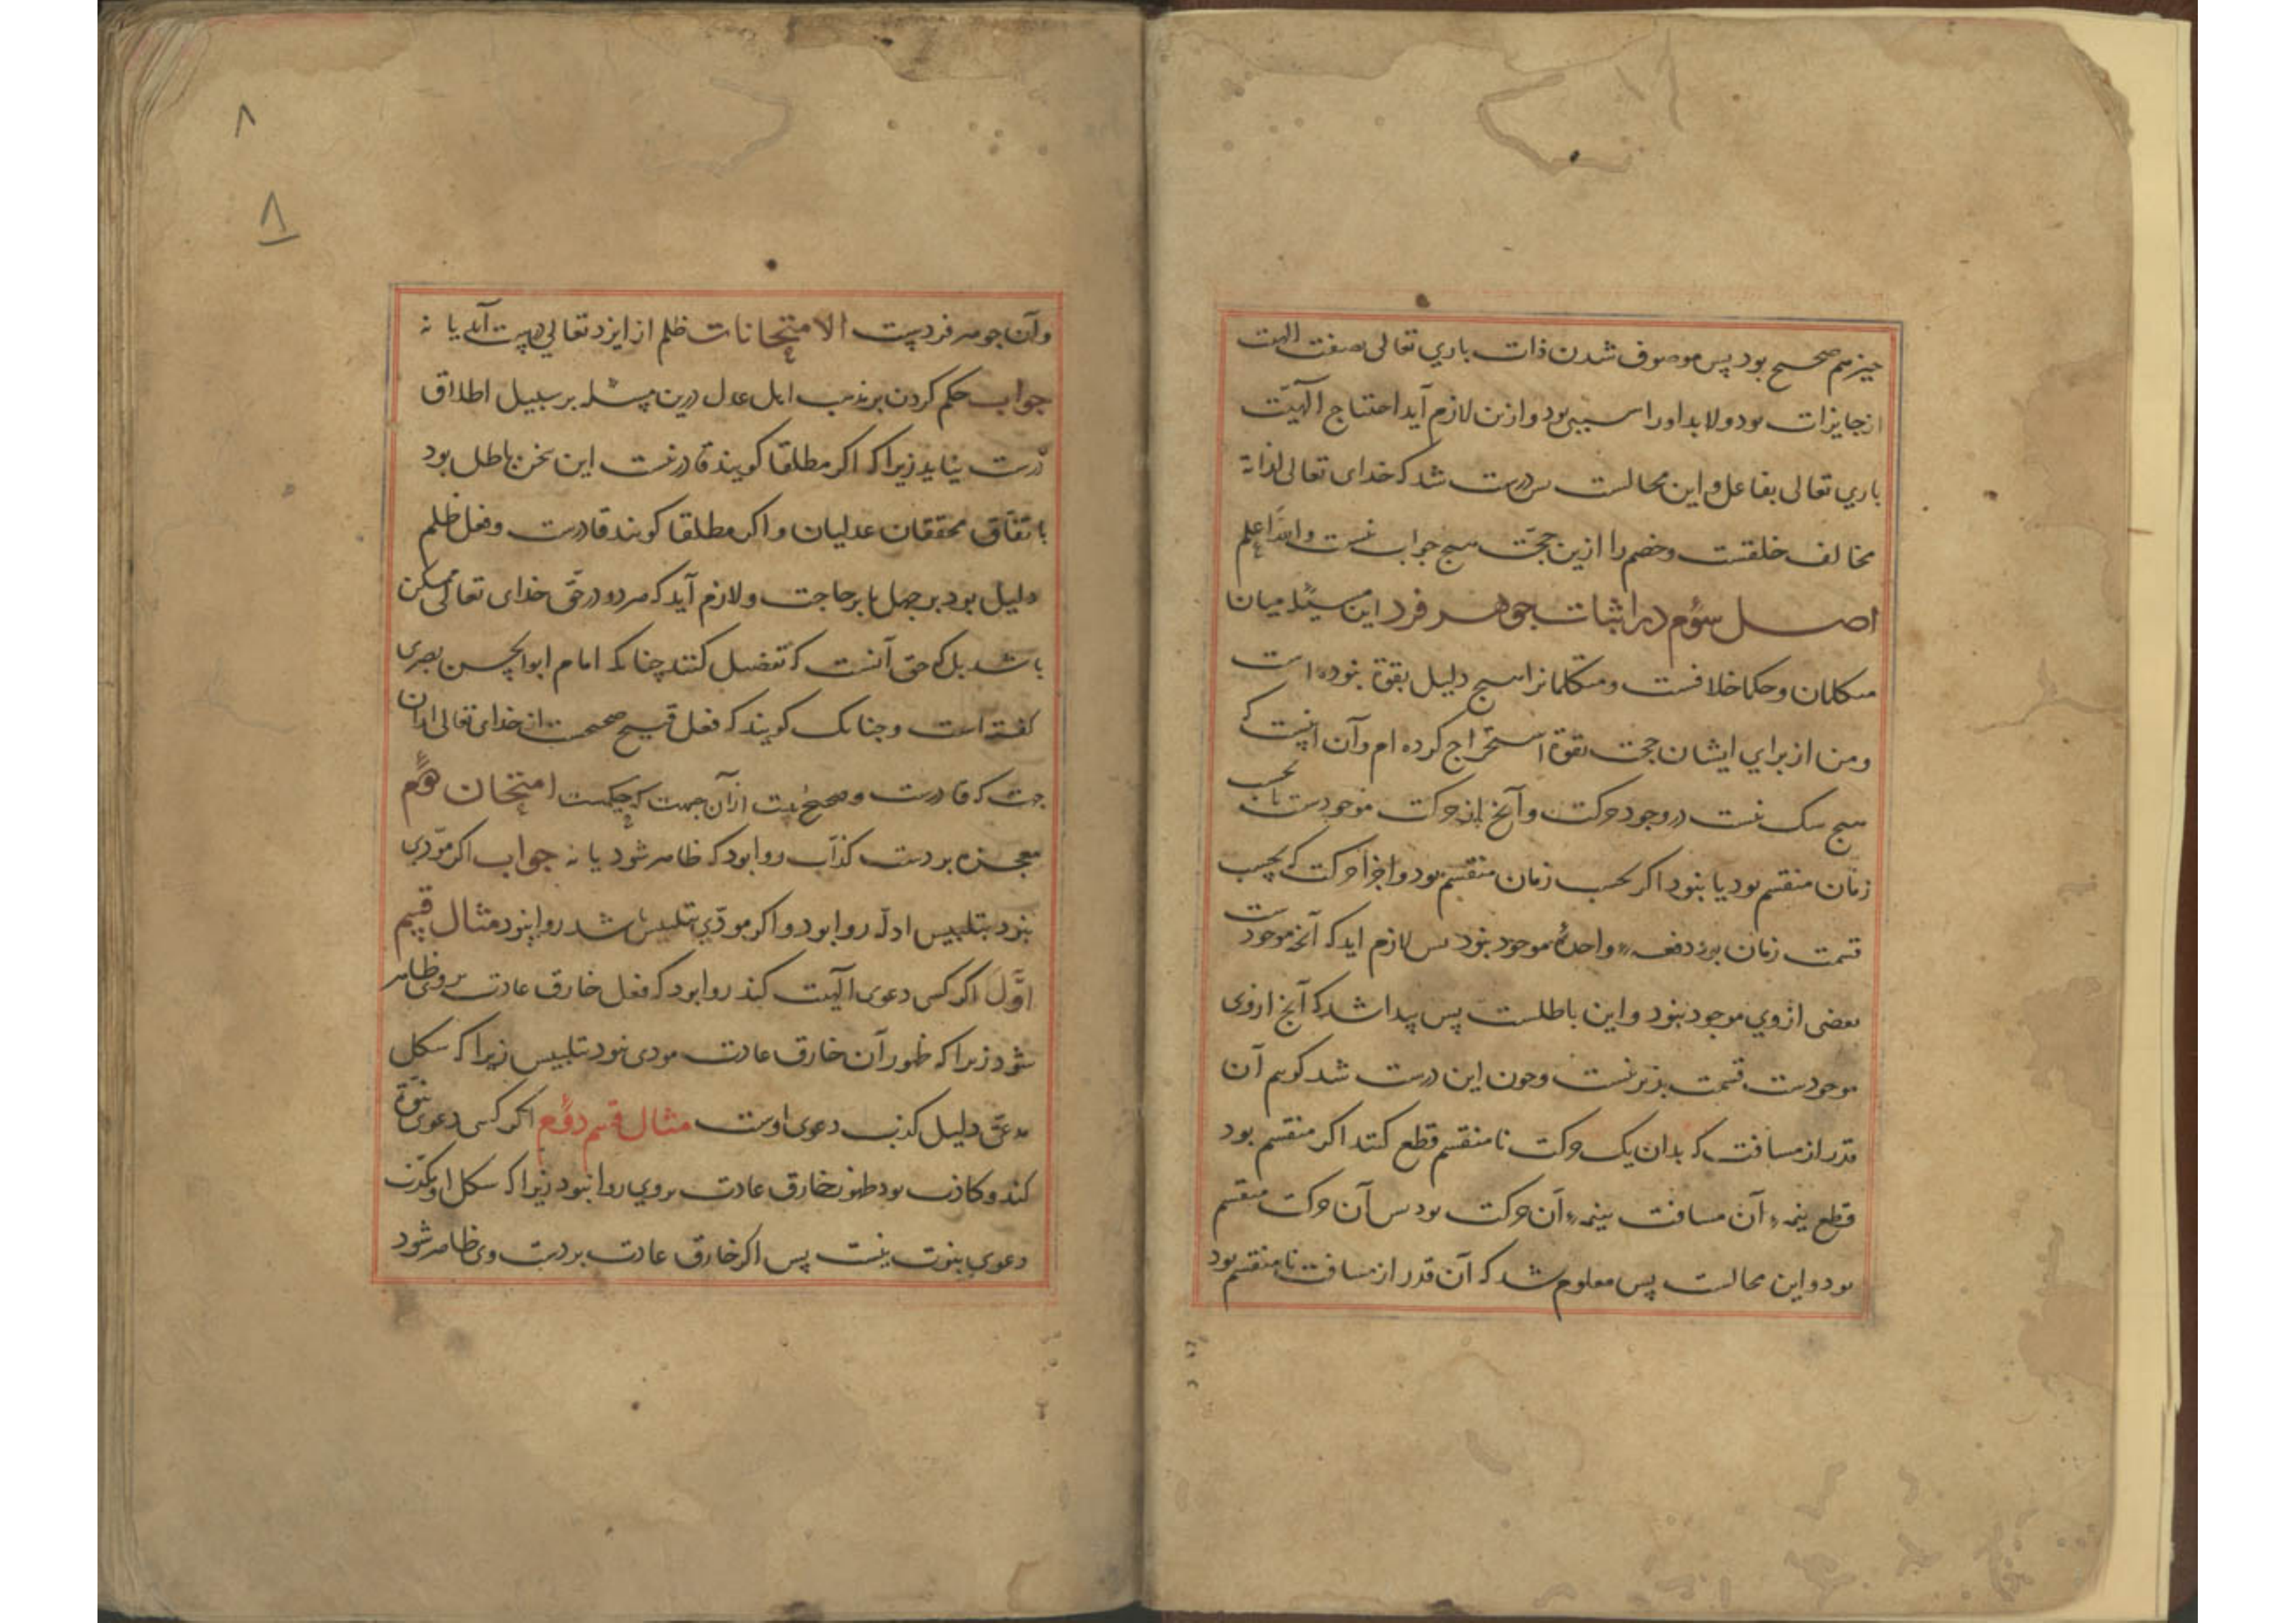 چیز هم صحیح بود پس موصوف شدن ذات باری تعالی بصفت الهیت
از جایزات بود ولابد او را سببی بود و ازین لازم آید احتیاج الهیّت
باری تعالی بفاعل و این محالست پس درست شد که خدای تعالی لذاته
مخالف خلقست و خصم را ازین حجّت هیچ جواب نیست والله اعلم
اصل سوم در اثبات جوهر فرد این مسئله میان
متکلمان و حکما خلافست و متکلمانرا هیچ دلیل بقوة نبوده است
و من از برای ایشان حجت بقوة استخراج کرده ام و آن اینست که
هیچ شک نیست در وجود حرکت و آنچ از حرکت موجودست یا بحسب
زمان منقسم بود یا نبود اگر بحسب زمان منقسم بود و اجزا حرکت که بحسب
قسمت زمان بود دفعة واحدة موجود نبود پس لازم اید که آنچه موجودست
بعضی از وی موجود نبود و این باطلست پس پیدا شد که آنچ از وی
موجودست قسمت پذیر نیست و چون این درست شد گوییم آن
قدر از مسافت که بدان یک حرکت نامنقسم قطع کنند اگر منقسم بود
قطع بنیمهٔ آن مسافت بنیمهٔ آن حرکت بود پس آن حرکت منقسم
بود و این محالست پس معلوم شد که آن قدر از مسافت نامنقسم بود
۸
۸
و آن جوهر فردست الامتحانات ظلم از ایزد تعالی درست آید یا نه
جواب حکم کردن بر مذهب اهل عدل درین مسئله بر سبیل اطلاق
درست نیاید زیرا که اگر مطلقا گویند قادر نیست این سخن باطل بود
باتفاق محققان عدلیان و اگر مطلقا گویند قادرست و فعل ظلم
دلیل بود بر جهل یا بر حاجت و لازم آید که هر دو در حق خدای تعالی ممکن
باشد بل که حق آنست که تفصیل کنند چنانکه امام ابوالحسن بصری
گفته است و چنانک گویند که فعل قبیح صحیحست از خدای تعالی از آن
جهت که قادرست و صحیح نیست از آن جهت که حکیمست امتحان دوم
معجزه بر دست کذّاب روا بود که ظاهر شود یا نه جواب اگر مؤدّی
نبود بتلبیس ادلّه روا بود و اگر مودّی بتلبیس باشد روا نبود مثال قسم
اوّل اگر کسی دعوی الهیت کند روا بود که فعل خارق عادت بر وی ظاهر
شود زیرا که ظهور آن خارق عادت مودی نبود بتلبیس زیرا که شکل
مدعی دلیل کذب دعوی اوست مثال قسم دوم اگر کسی دعوی نبوّة
کند و کاذب بود ظهور خارق عادت بر وی روا نبود زیرا که شکل او مکذّب
دعوی نبوت نیست پس اگر خارق عادت بر دست وی ظاهر شود